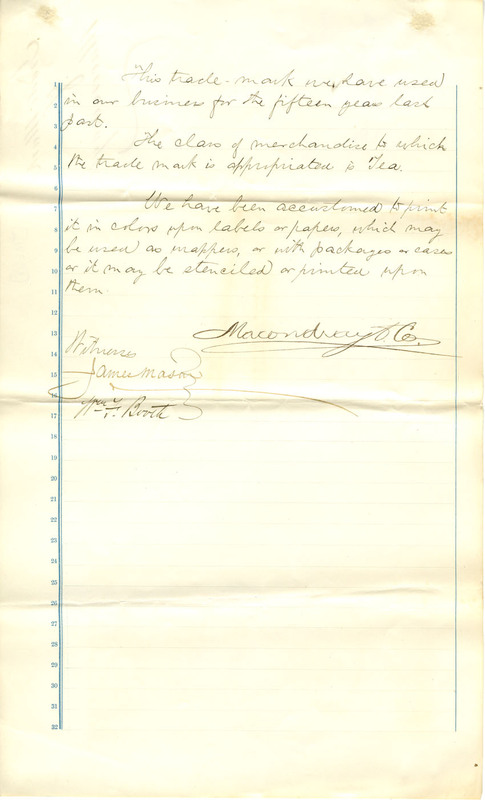 This trade-mark we have used
in our business for the fifteen years last
past.
The class of merchandise to which
the trade mark is appropriated is Tea.
We have been accustomed to print
it in colors upon labels or papers, which may
be used as wrappers, or with packages or cases
or it may be stenciled or printed upon
them.
Macondray & Co.
Witnesses
James Mason
Wm. F. Booth
1
2
3
4
5
6
7
8
9
10
11
12
13
14
15
16
17
18
19
20
21
22
23
24
25
26
27
28
29
30
31
32